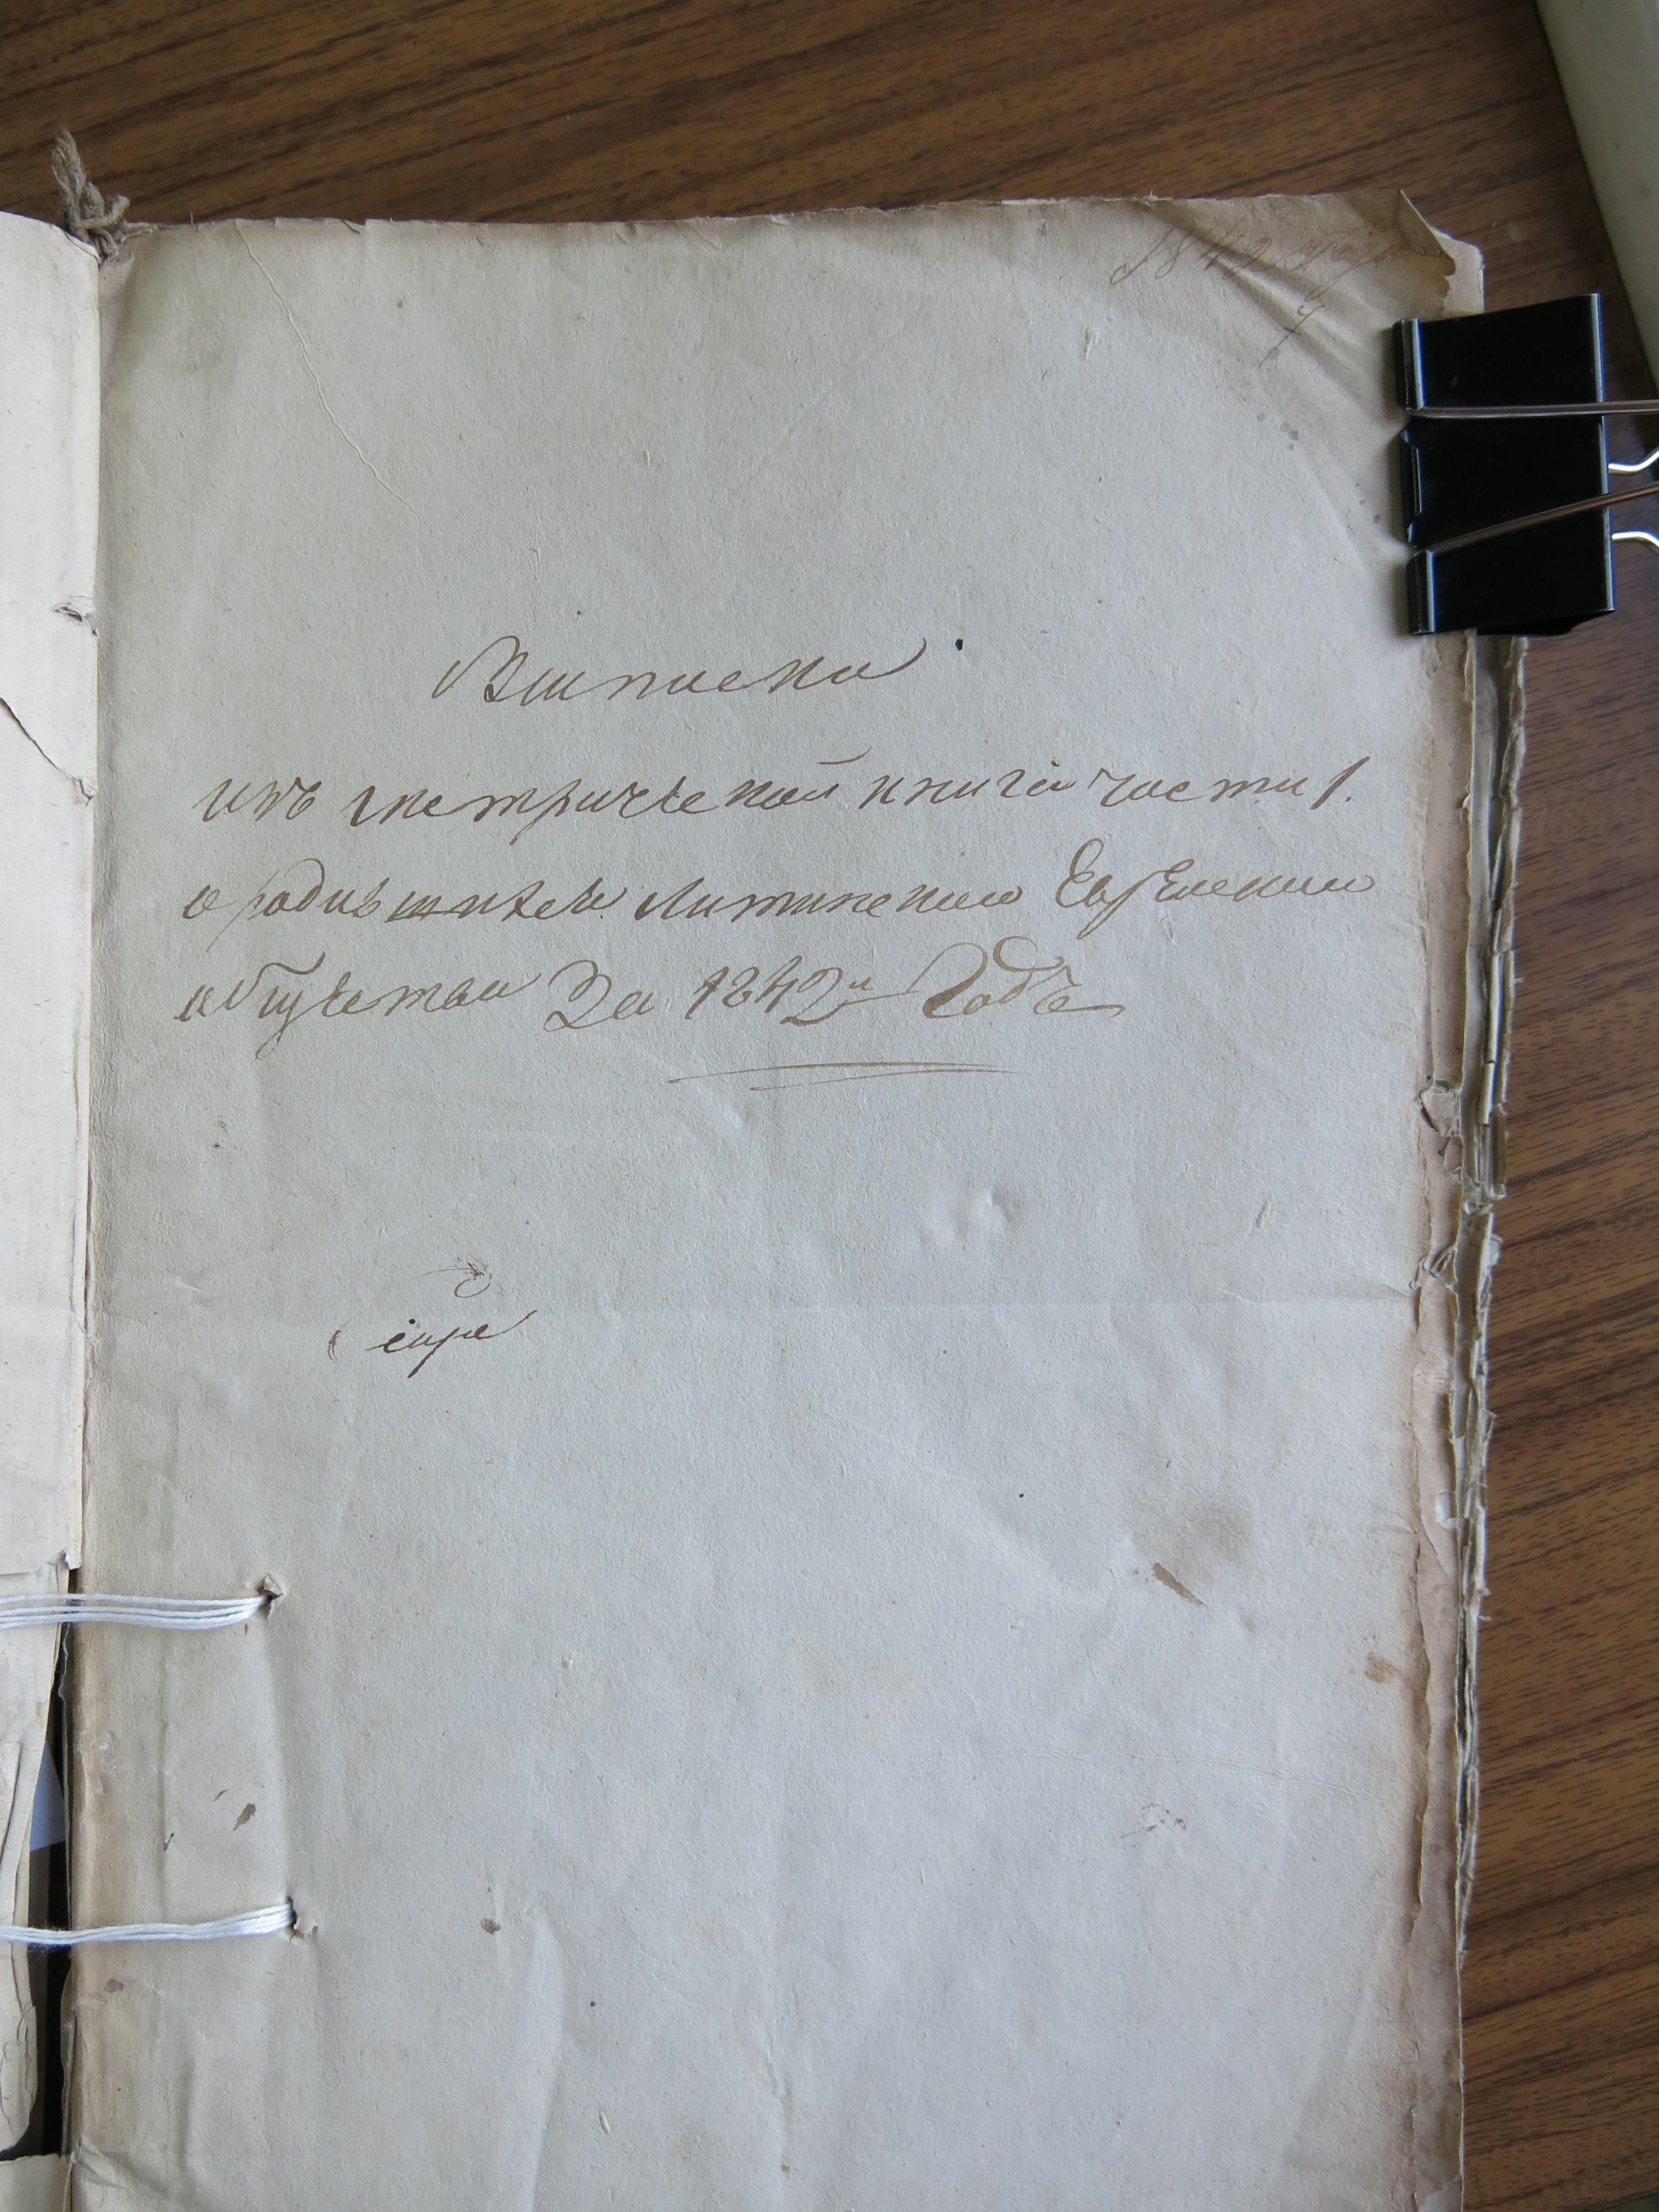 1842 года
Выписка
изъ метрической книги части 1.
о родившихся Литинскаго Еврейскаго
общества За 1842й Годъ